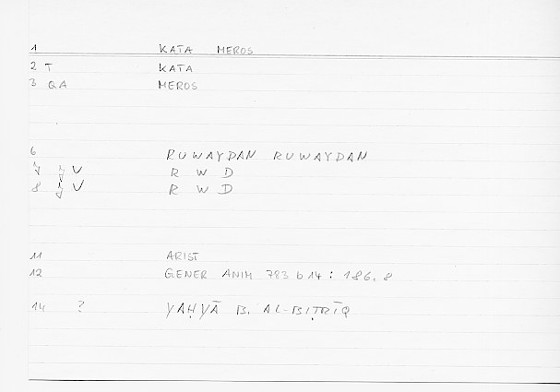 1 KATA MEROS
2 T KATA
3 QA MEROS
6 RUWAYDAN RUWAYDAN
7 V R W D
8 V R W D
11 ARIST
12 GENER ANIM 783 b 14 : 186.8
14 ? YAḤYĀ B. AL-BIṬRĪQ